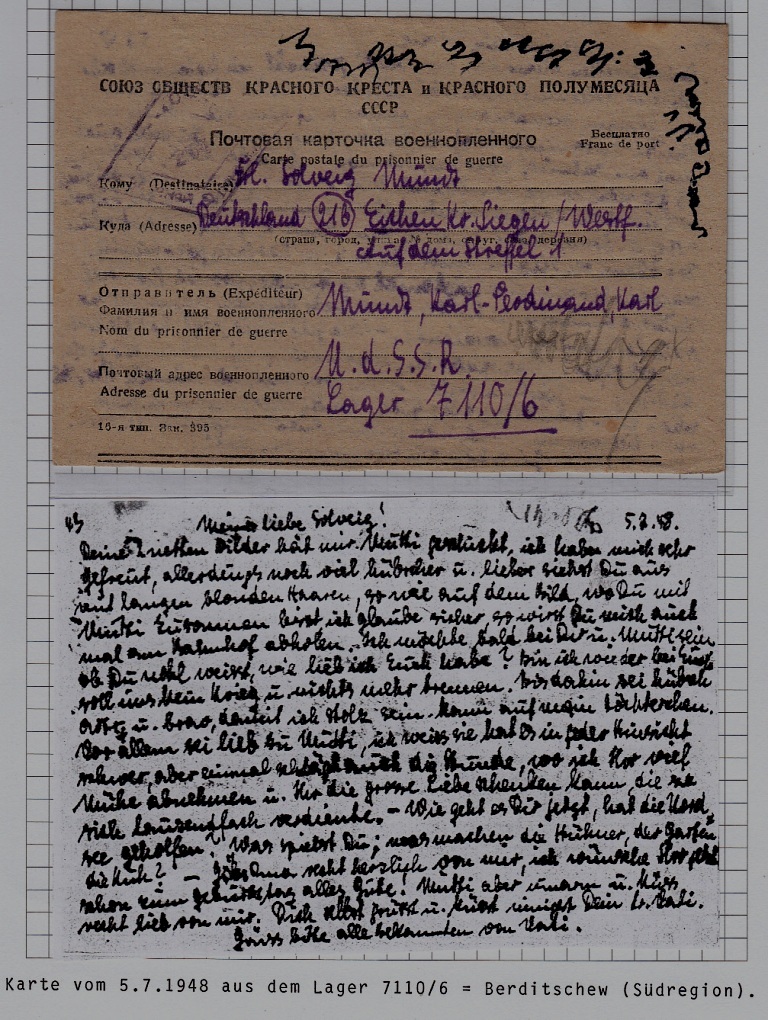 СОЮЗ ОБЩЕСТВ КРАСНОГО КРЕСТА и КРАСНОГО ПОЛУМЕСЯЦА
СССР
Почтовая карточка военнопленного
Бесплатно
Carte postale du prisonnier de guerre
Franc de port
Кому (Destinataire) Frl. Solveig Mundt
Куда (Adresse) Deutschland (21b) Eichen Kr. Siegen/Westf.
(страна, город, улица, № дома, округ, село, деревня)
Auf dem Streffel 1
Отправитель (Expéditeur)
Фамилия и имя военнопленного Mundt, Karl-Ferdinand, Karl
Nom du prisonnier de guerre
Почтовый адрес военнопленного U.d.S.S.R.
Adresse du prisonnier de guerre Lager 7110/6
16-я тип. Зак. 395
Meine liebe Solveig! 5.7.48.
Deine netten Bilder hat mir Mutti geschickt, ich habe mich sehr
gefreut, allerdings noch viel hübscher u. lieber siehst Du aus
mit langen blonden Haaren, so wie auf dem Bild, wo Du mit
Mutti zusammen bist, ich glaube sicher, so wirst Du mich auch
mal am Bahnhof abholen. Ich möchte bald bei Dir u. Mutti sein,
ob Du wohl weisst, wie lieb ich Euch habe? Bin ich wieder bei Euch,
soll uns kein Krieg u. nichts mehr trennen. Bis dahin sei hübsch
artig u. brav, damit ich stolz sein kann auf mein Töchterchen.
Vor allem sei lieb zu Mutti, ich weiss sie hat es in jeder Hinsicht
schwer, aber einmal schlägt auch die Stunde, wo ich Ihr viel
Mühe abnehmen u. Ihr die grosse Liebe schenken kann, die sie
sich tausendfach verdiente. – Wie geht es Dir jetzt, hat die Nord-
see geholfen? Was spielst Du; was machen die Hühner, der Garten,
die Kuh? – Grüss Oma recht herzlich von mir, ich wünsche Ihr jetzt
schon zum Geburtstag alles Gute. Mutti aber umarm u. küss
recht lieb von mir. Dich selbst grüsst u. küsst innigst Dein lb. Vati.
Grüss bitte alle Bekannten von Vati.
Karte vom 5.7.1948 aus dem Lager 7110/6 = Berditschew (Südregion).